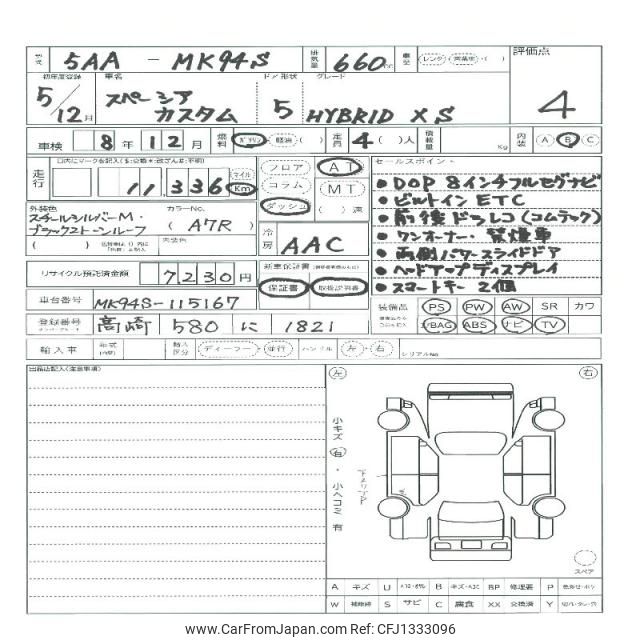 型式 5AA - MK94S 排気量 660cc 車型 (レンタ)(営業車)・( ) 評価点
初年度登録 車名 ドア形状 グレード
5/12月 スペーシア カスタム 5 HYBRID XS 4
車検 8年 12月 燃料 ガソリン・軽油・( ) 定員 4( )人 積載量 Kg 内装 A B C
走行 11,336 マイル Km フロア AT セールスポイント
コラム MT
ダッシュ ( )速
• DOP 8インチフルセグナビ
• ビルトインETC
• 前後ドラレコ(コムテック)
• ワンオーナー・禁煙車
• 両側パワースライドドア
• ヘッドアップディスプレイ
• スマートキー 2個
外装色 カラーNo.
スチールシルバーM・ブラック2トーンルーフ (A7R)
内装色
冷房 AAC
リサイクル預託済金額 7230円 新車保証書
保証書 取扱説明書
車台番号 MK94S-115167
装備品 PS PW AW SR カワ
エアBAG ABS ナビ TV
登録番号 高崎 580 に 1821
輸入車 年式 輸入区分 ディーラー・並行 ハンドル 左・右 シリアルNo
出品店記入(注意事項)
左 右
小キズ 有 ・ 小ヘコミ 有
スペア
A キズ U B キズ・ヘコミ BP 修理要 P
W 補修跡 S サビ C 腐食 XX 交換済 Y
www.CarFromJapan.com - CFJ1333096